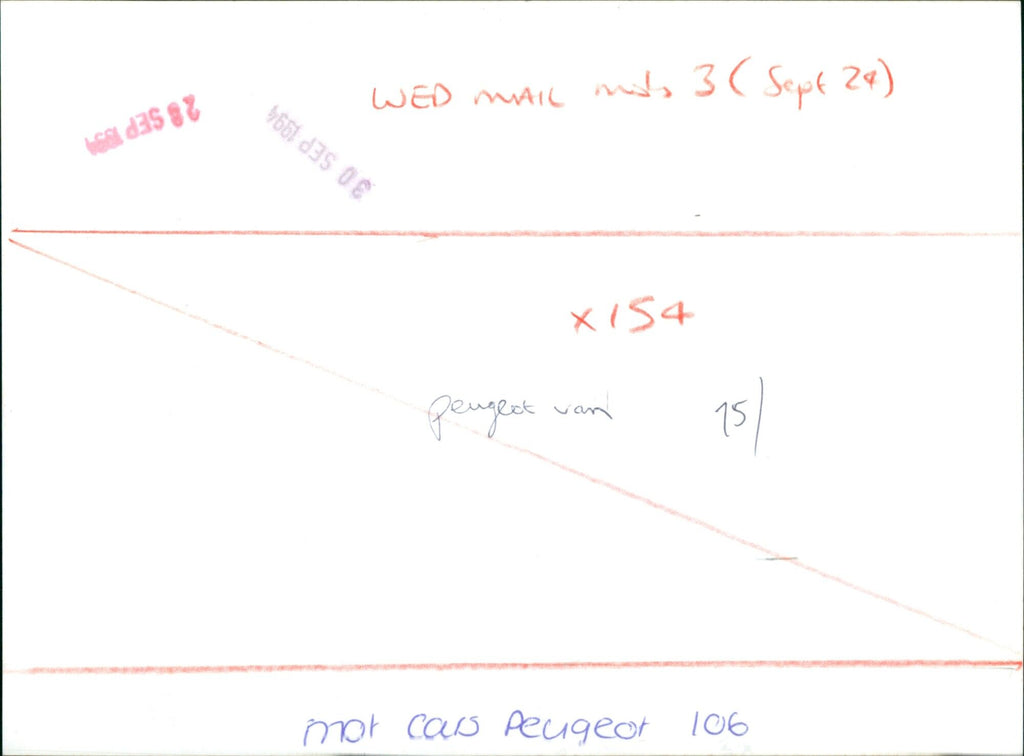 WED MAIL mots 3 (Sept 24)
28 SEP 1994
30 SEP 1994
x154
peugeot van 15/
mot cars Peugeot 106